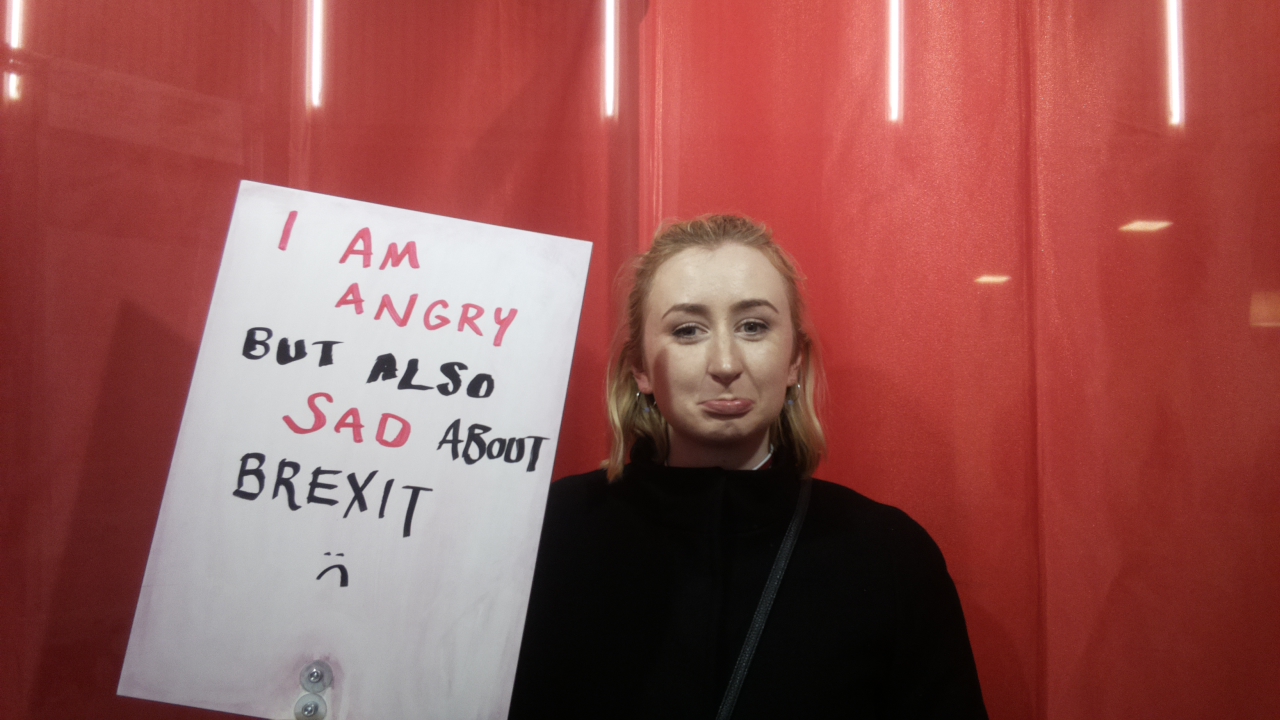 I AM
ANGRY
BUT ALSO
SAD ABOUT
BREXIT